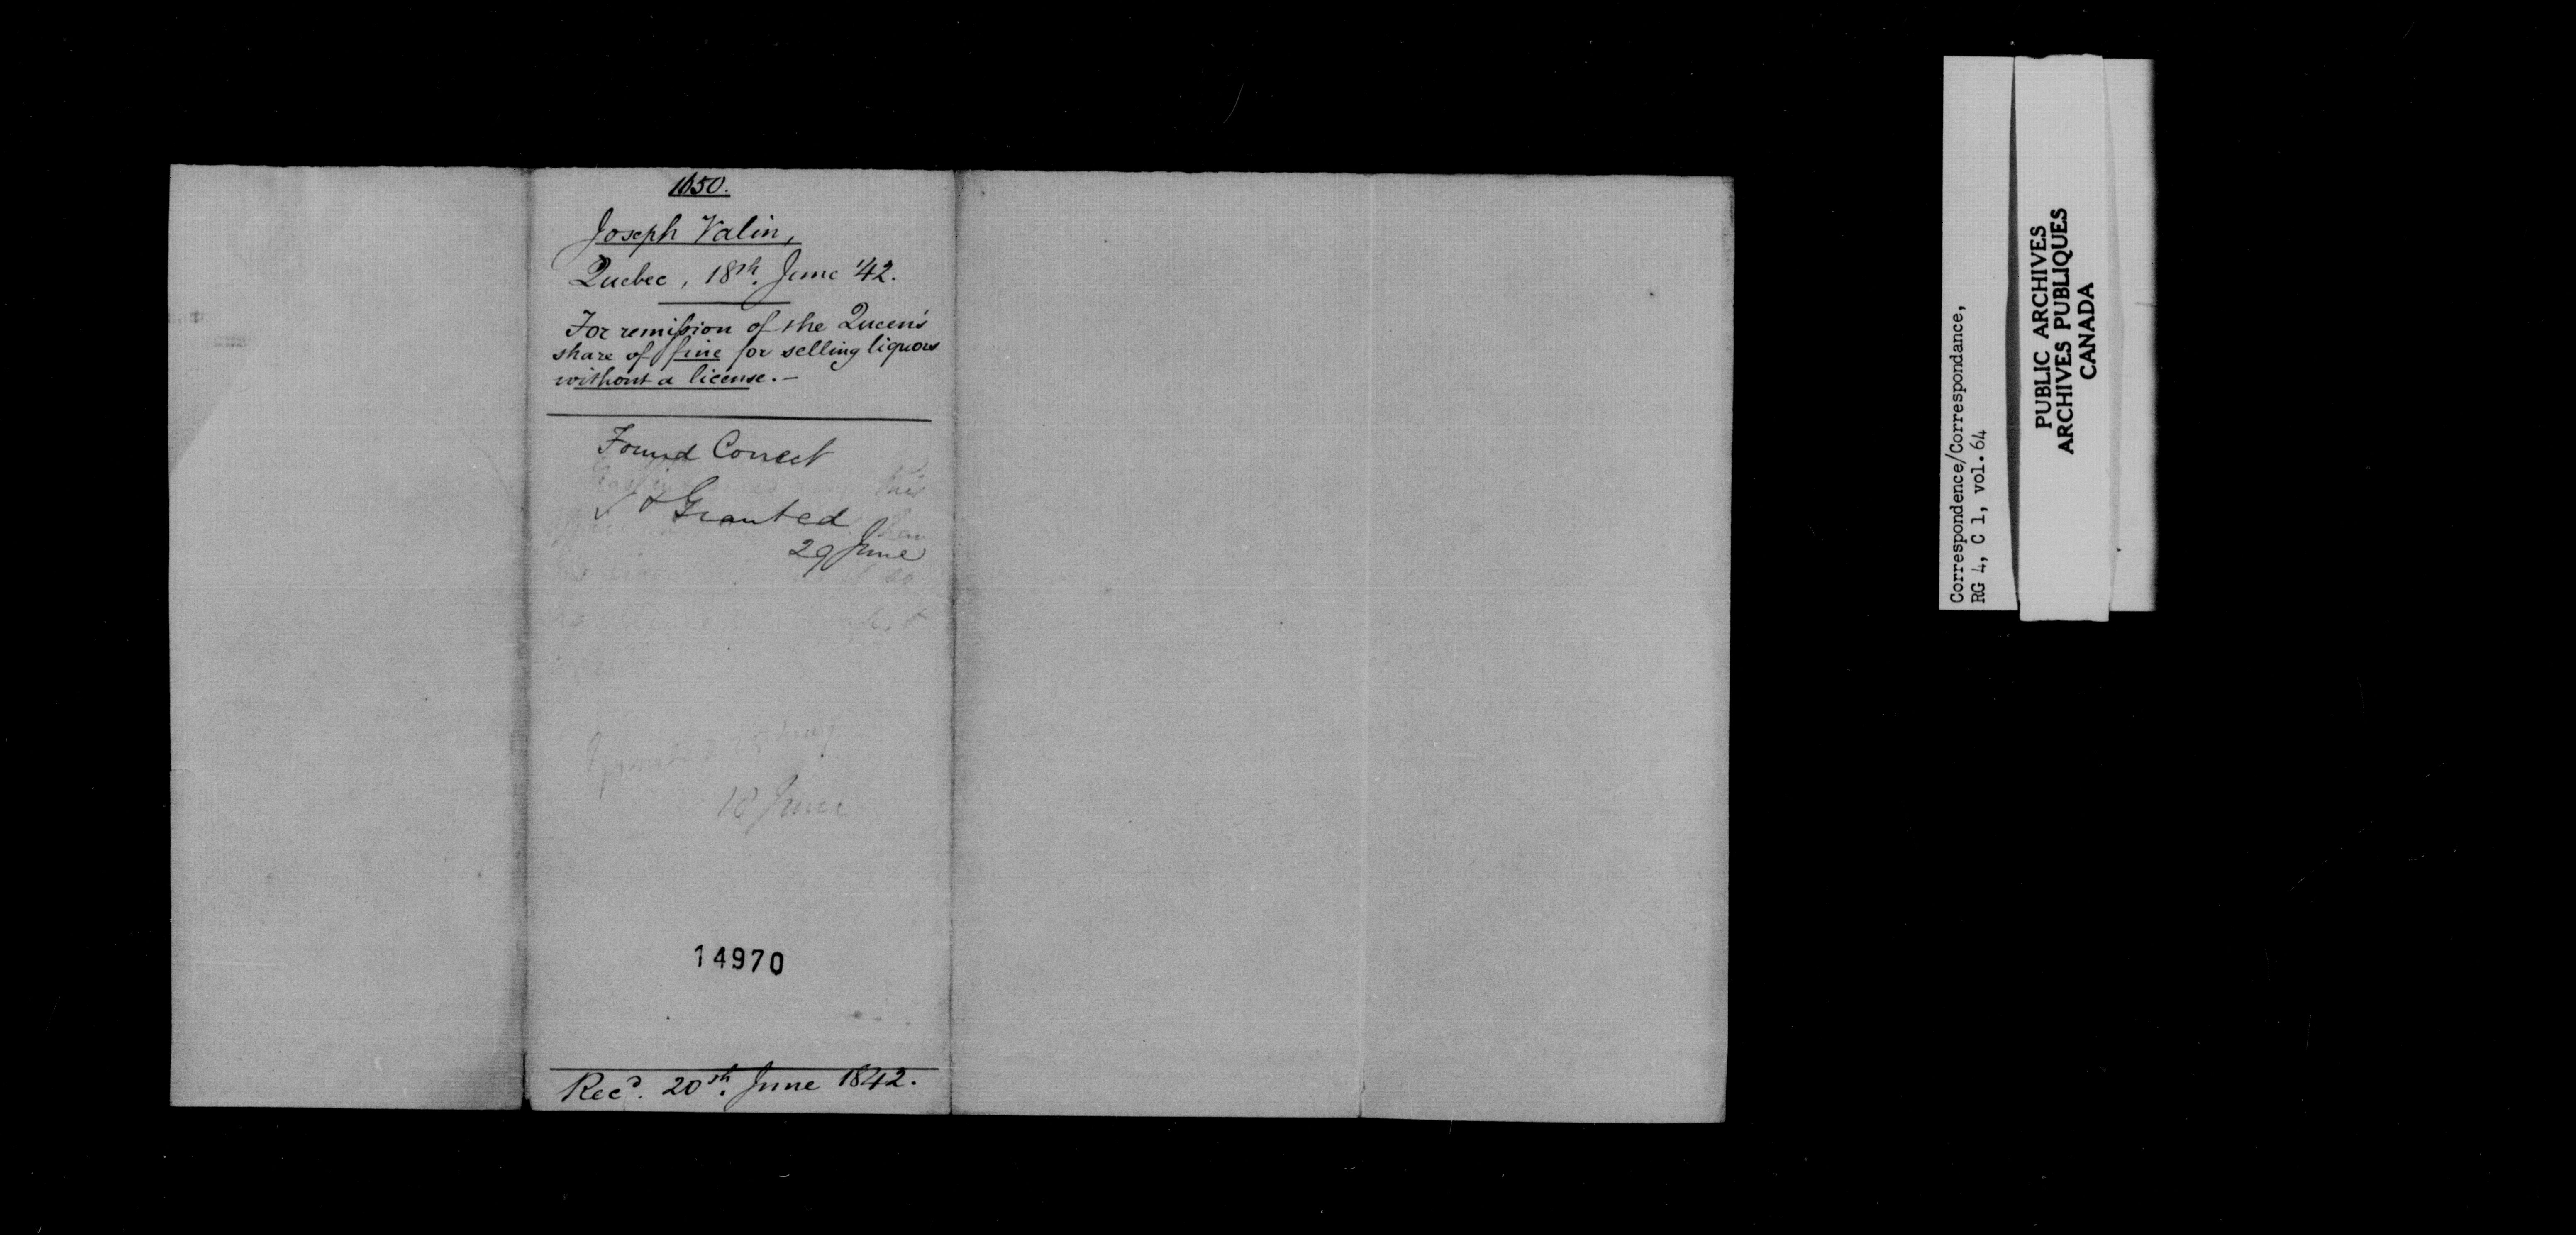 1650.
Joseph Valin,
Quebec, 18th. June '42.
For remission of the Queen's
share of fine for selling liquors
without a license.—
Found Correct
this
& Granted
29 June
18 June
14970
Recd. 20th. June 1842.
Correspondence/Correspondance,
RG 4, C 1, vol. 64
PUBLIC ARCHIVES
ARCHIVES PUBLIQUES
CANADA